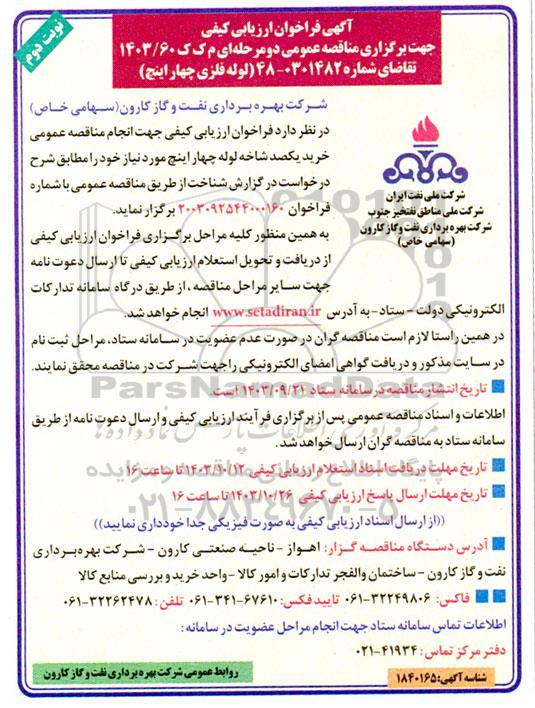 نوبت دوم
آگهی فراخوان ارزیابی کیفی
جهت برگزاری مناقصه عمومی دو مرحله‌ای م ک ک ۱۴۰۳/۶۰
تقاضای شماره ۰۳۰۱۴۸۲-۴۸ (لوله فلزی چهار اینچ)
شرکت ملی نفت ایران
شرکت ملی مناطق نفتخیز جنوب
شرکت بهره برداری نفت و گاز کارون
(سهامی خاص)
شرکت بهره برداری نفت و گاز کارون(سهامی خاص)
در نظر دارد فراخوان ارزیابی کیفی جهت انجام مناقصه عمومی
خرید یکصد شاخه لوله چهار اینچ مورد نیاز خود را مطابق شرح
درخواست در گزارش شناخت از طریق مناقصه عمومی با شماره
فراخوان ۲۰۰۳۰۹۲۵۴۴۰۰۰۱۶۰ برگزار نماید.
به همین منظور کلیه مراحل برگزاری فراخوان ارزیابی کیفی
از دریافت و تحویل استعلام ارزیابی کیفی تا ارسال دعوت نامه
جهت سایر مراحل مناقصه ، از طریق درگاه سامانه تدارکات
الکترونیکی دولت - ستاد- به آدرس www.setadiran.ir انجام خواهد شد.
در همین راستا لازم است مناقصه گران در صورت عدم عضویت در سامانه ستاد، مراحل ثبت نام
در سایت مذکور و دریافت گواهی امضای الکترونیکی را جهت شرکت در مناقصه محقق نمایند.
تاریخ انتشار مناقصه در سامانه ستاد ۱۴۰۳/۰۹/۲۱ است.
اطلاعات و اسناد مناقصه عمومی پس از برگزاری فرآیند ارزیابی کیفی و ارسال دعوت نامه از طریق
سامانه ستاد به مناقصه گران ارسال خواهد شد.
تاریخ مهلت دریافت اسناد استعلام ارزیابی کیفی ۱۴۰۳/۱۰/۱۲ تا ساعت ۱۶
تاریخ مهلت ارسال پاسخ ارزیابی کیفی ۱۴۰۳/۱۰/۲۶ تا ساعت ۱۶
((از ارسال اسناد ارزیابی کیفی به صورت فیزیکی جدا خودداری نمایید))
آدرس دستگاه مناقصه گزار: اهواز - ناحیه صنعتی کارون - شرکت بهره برداری
نفت و گاز کارون - ساختمان والفجر تدارکات و امور کالا - واحد خرید و بررسی منابع کالا
فاکس: ۳۲۲۴۹۸۰۶-۰۶۱ تایید فکس: ۶۷۶۱۰-۳۴۱-۰۶۱ تلفن: ۳۲۲۶۲۴۷۸-۰۶۱
اطلاعات تماس سامانه ستاد جهت انجام مراحل عضویت در سامانه:
دفتر مرکز تماس: ۴۱۹۳۴-۰۲۱
شناسه آگهی: ۱۸۴۰۱۶۵
روابط عمومی شرکت بهره برداری نفت و گاز کارون
ParsNamadData
۰۲۱-۸۸۳۴۹۶۷۰-۵